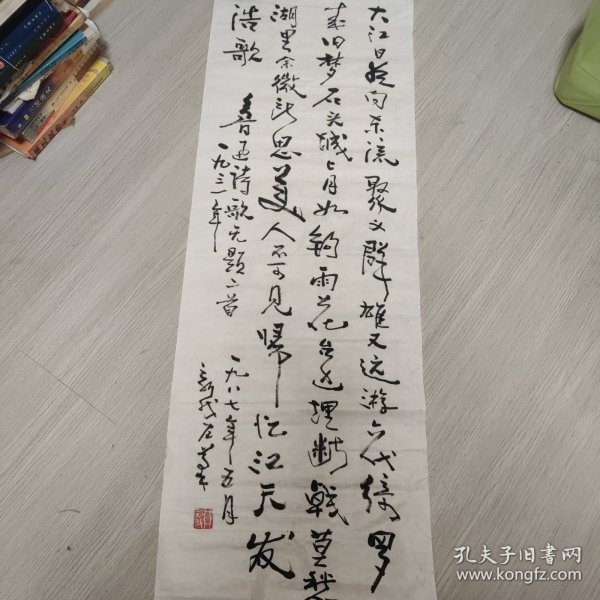 大江日夜向东流聚义群雄又远游六代绮罗
成旧梦石头城上月如钩雨花台边埋断戟莫愁
湖里余微波所思美人不可见归忆江天发
浩歌
鲁迅诗歌无题二首
一九三一年
一九八七年五月
孔夫子旧书网
www.kongfz.com